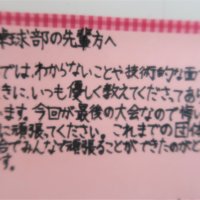 球部の先輩方へ
では、わからないことや技術的な面で
きに、いつも優しく教えてくださってあり
います。今回が最後の大会なので悔い
に頑張ってください。これまでの団体
合でみんなで頑張ることができたのがと
す。